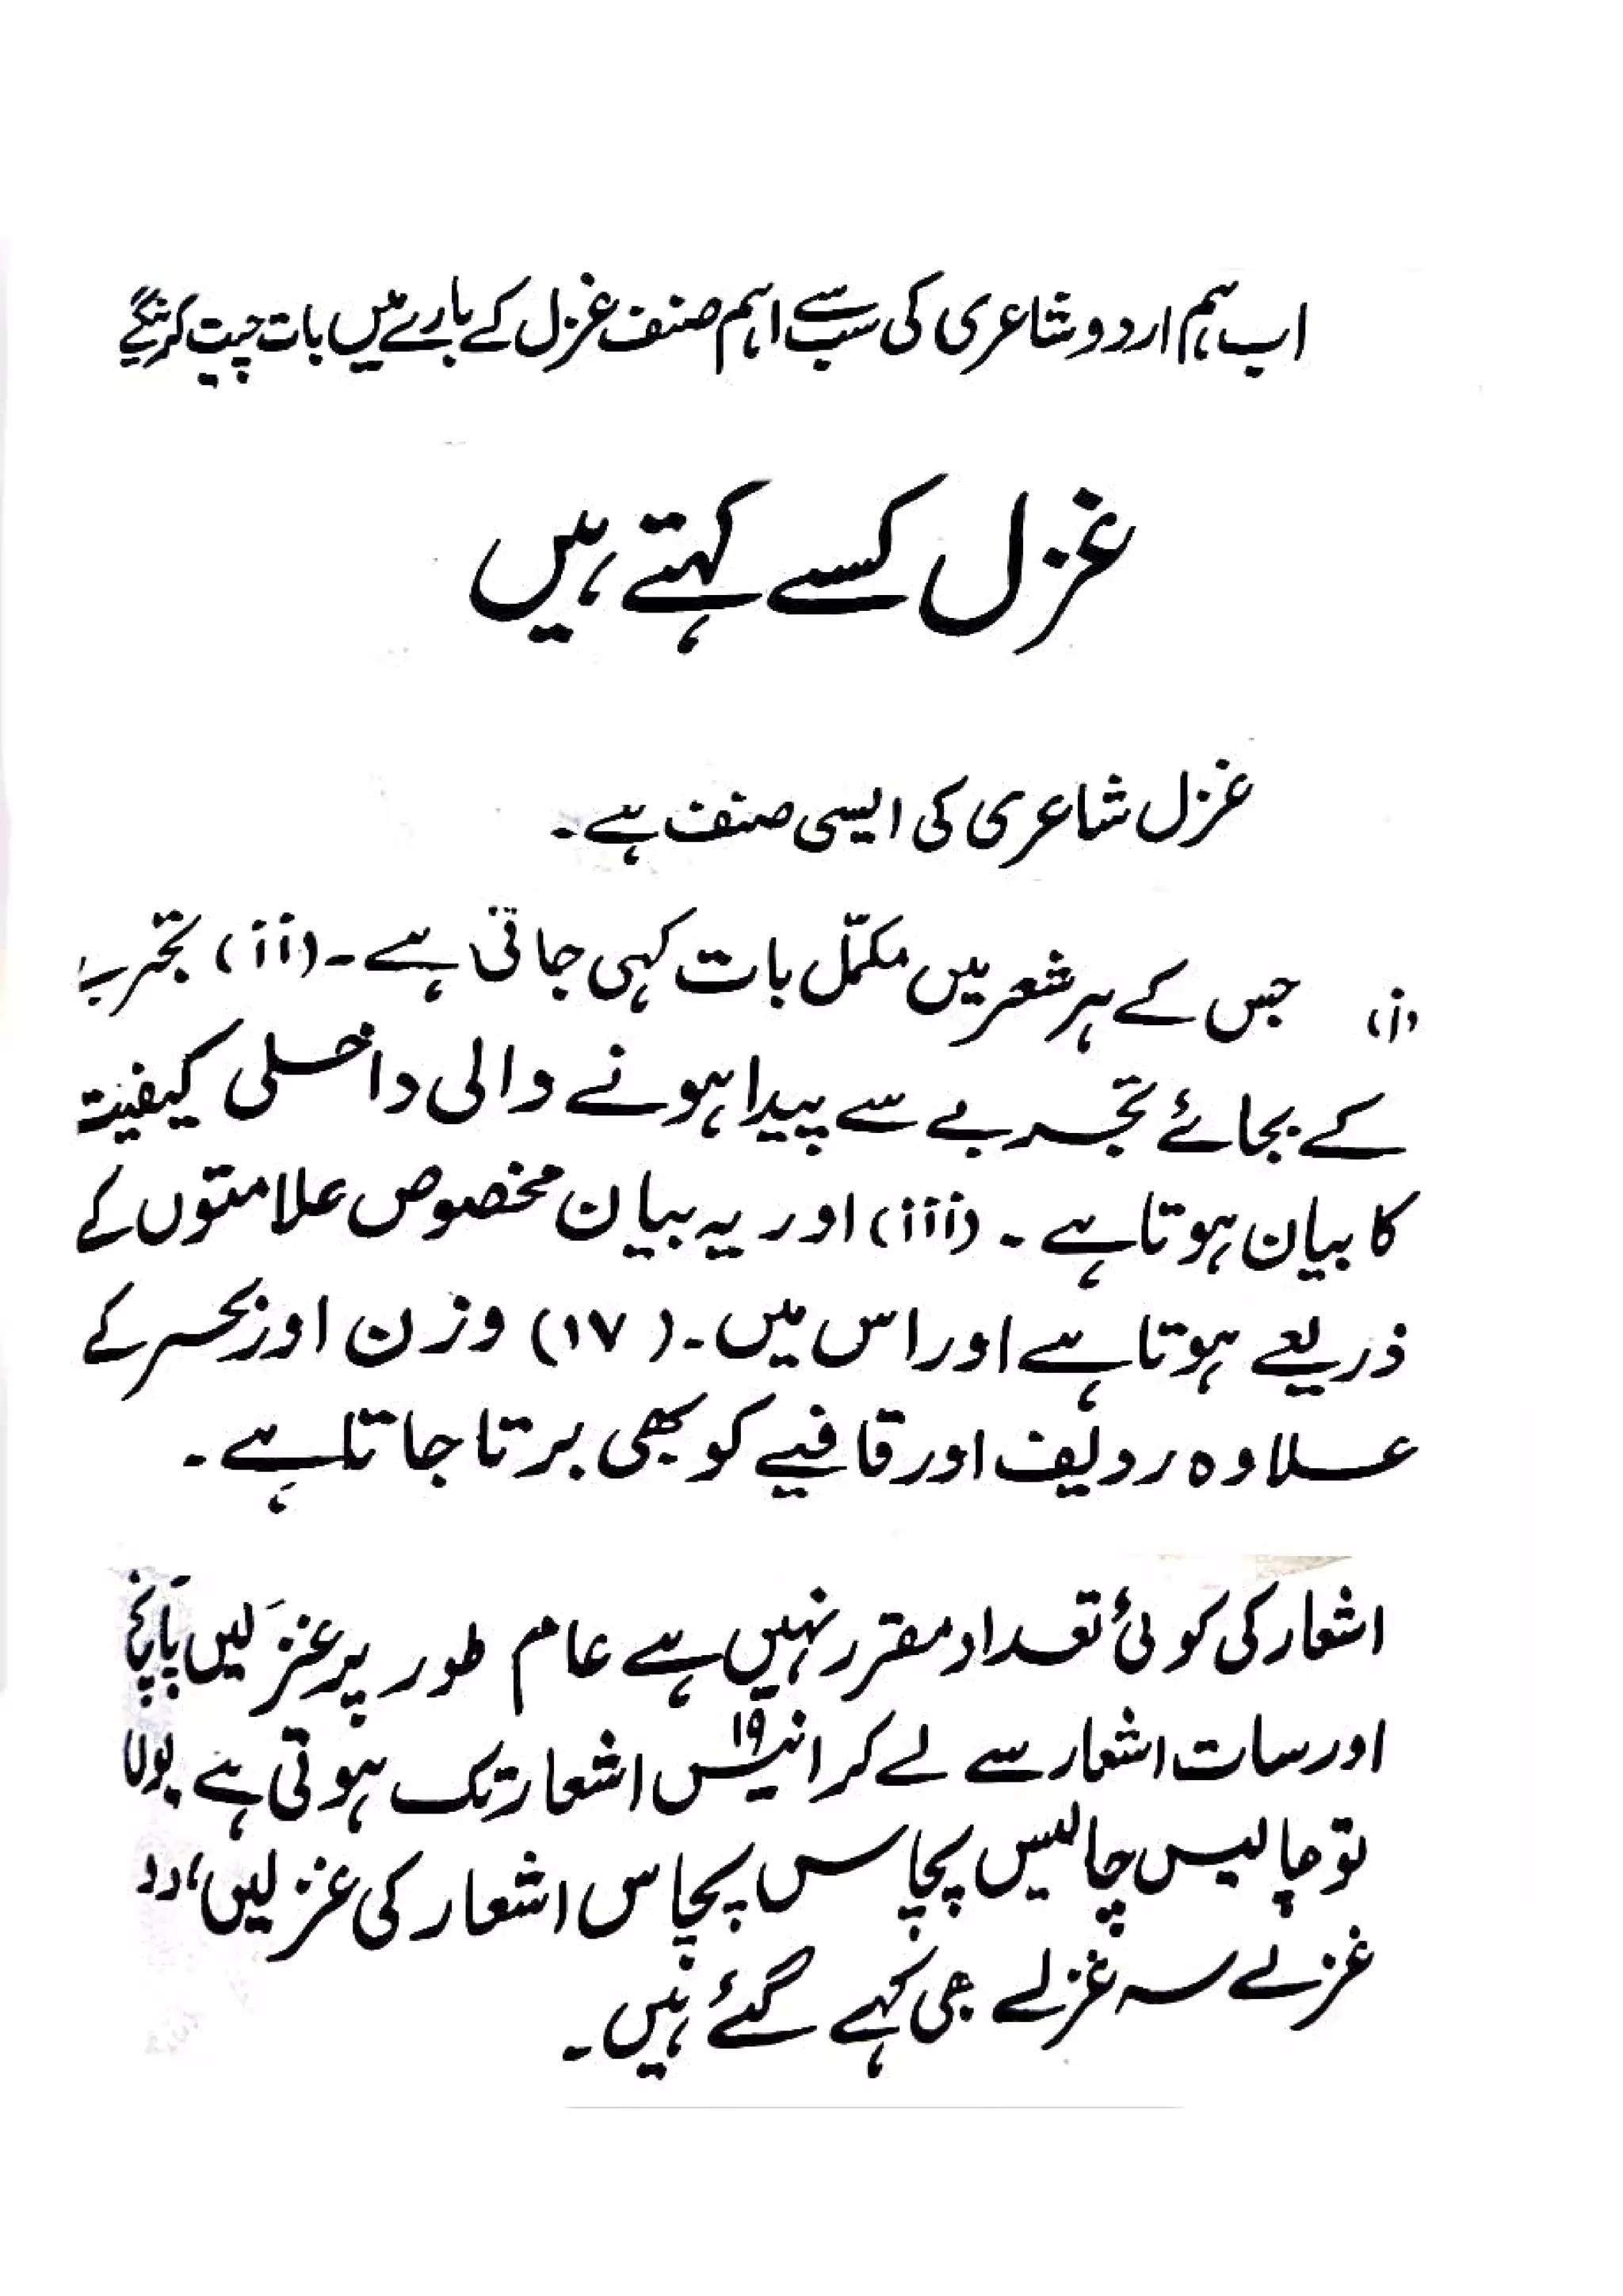 اب ہم اردو شاعری کی سب سے اہم صنف غزل کے بارے میں بات چیت کرینگے
غزل کسے کہتے ہیں
غزل شاعری کی ایسی صنف ہے۔
(i) جس کے ہر شعر میں مکمّل بات کہی جاتی ہے۔ (ii) تجربے
کے بجائے تجربے سے پیدا ہونے والی داخلی کیفیت
کا بیان ہوتا ہے۔ (iii) اور یہ بیان مخصوص علامتوں کے
ذریعے ہوتا ہے اور اس میں۔ (۱۷) وزن اور بحر کے
علاوہ ردیف اور قافیے کو بھی برتا جاتا ہے۔
اشعار کی کوئی تعداد مقرر نہیں ہے عام طور پر غزلیں پانچ
اور سات اشعار سے لے کر انیس ۱۹ اشعار تک ہوتی ہے یوں
تو چالیس چالیس پچاس پچاس اشعار کی غزلیں، دو
غزلے سہ غزلے بھی کہے گئے ہیں۔